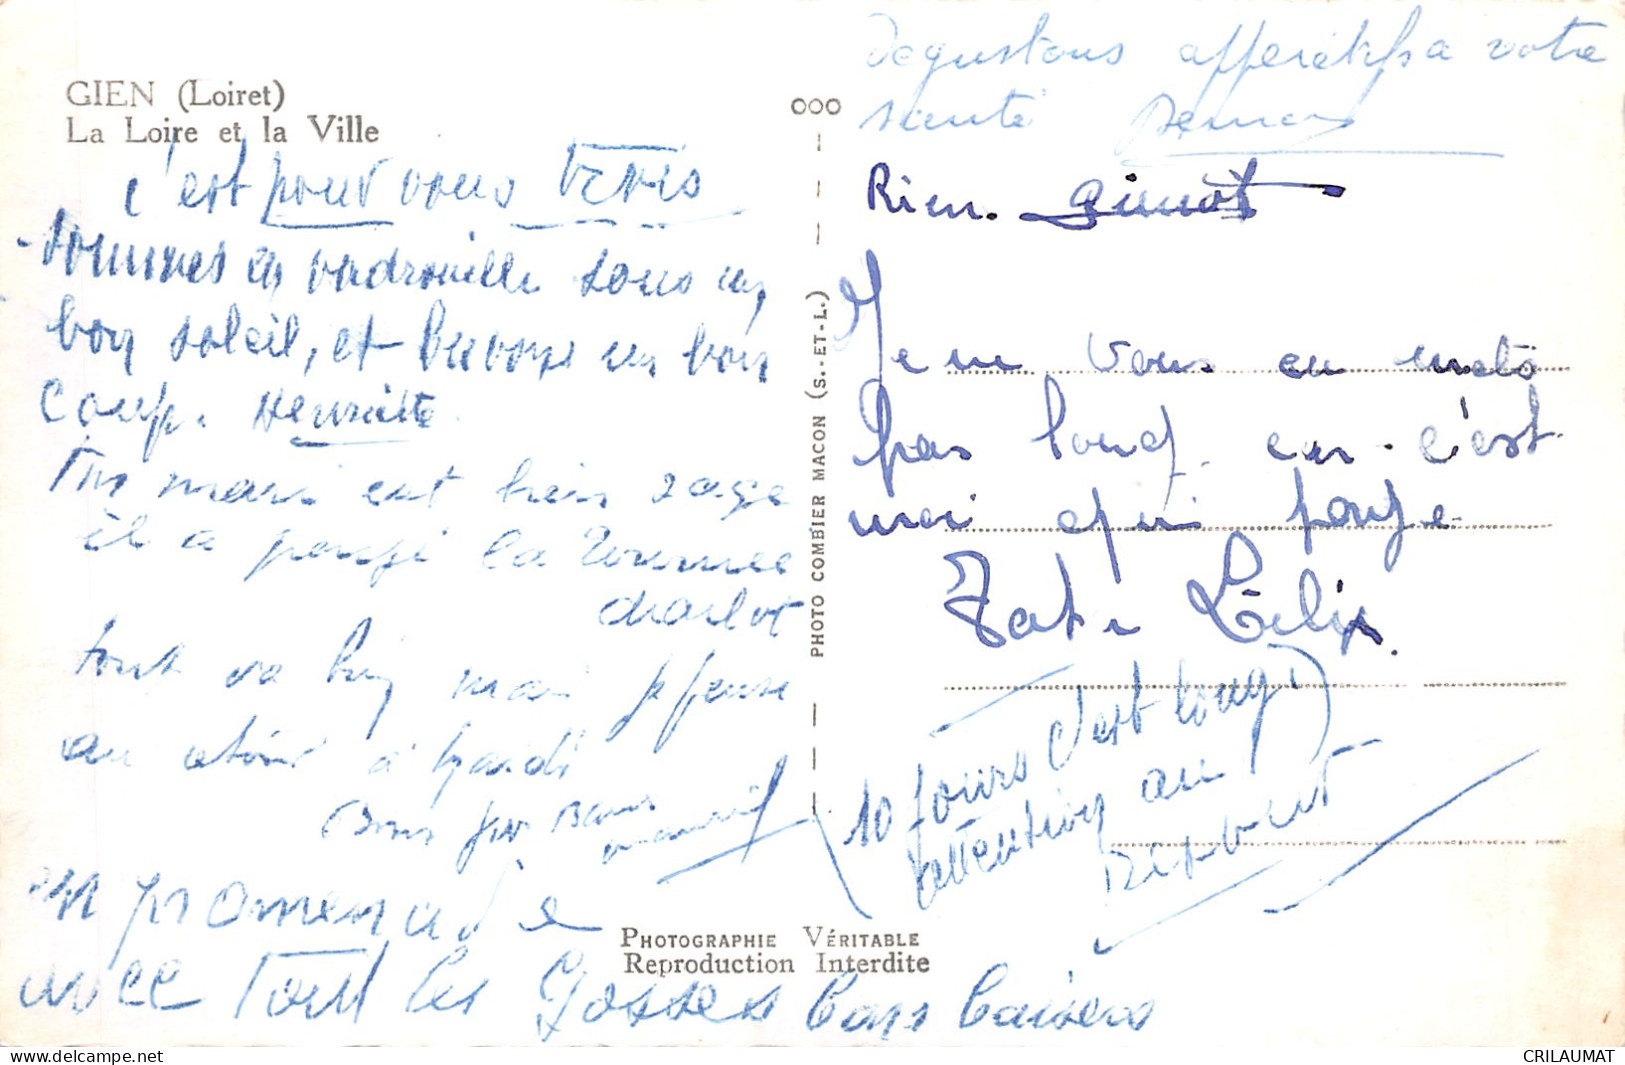 GIEN (Loiret)
La Loire et la Ville
c'est pour vous trois
sommes en vadrouille sous un
bon soleil, et buvons un bon
coup. Henriette
mari est bien sage
il a payé la tournée
charlot
tout va bien mais je pense
au retour à
Bons baisers
en promenade
avec tout les Gosses bons baisers
PHOTO COMBIER MACON (S.-ET-L.)
Photographie Véritable
Reproduction Interdite
Degustons apperitifs a votre
santé
Rien.
Je vous en mets
pas long car c'est
moi qui
10 jours c'est long
attention au
retour
CRILAUMAT